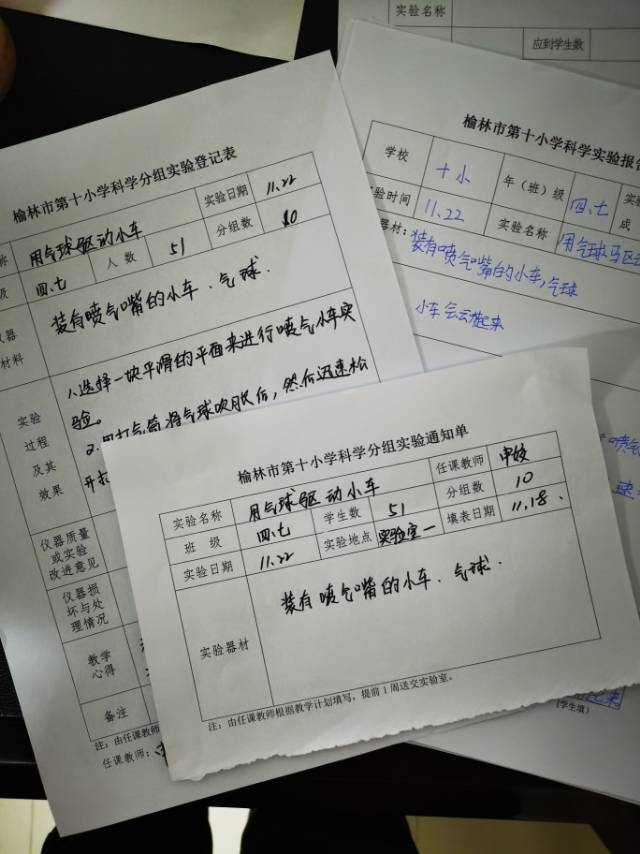 实验名称
应到学生数
榆林市第十小学科学分组实验登记表
用气球驱动小车 实验日期 11.22
四.七 人数 51 分组数 10
装有喷气嘴的小车、气球.
材料
实验
过程
及其
效果
1.选择一块平滑的平面来进行喷气小车实
验。
2.用打气筒将气球吹胀后,然后迅速松
开
仪器质量
或实验
改进意见
仪器损
坏与处
理情况
教学
心得
备注
注:由任课教师
任课教师:
榆林市第十小学科学实验报告
学校 十小 年(班)级 四.七
实验时间 11.22 实验名称 用气球驱
器材:装有喷气嘴的小车,气球
小车会云起来
喷气
(学生填)
榆林市第十小学科学分组实验通知单
实验名称 用气球驱动小车 任课教师
班级 四.七 学生数 51 分组数 10
实验日期 11.22 实验地点 实验室一 填表日期 11.18、
实验器材 装有喷气嘴的小车、气球.
注:由任课教师根据教学计划填写,提前1周送交实验室。